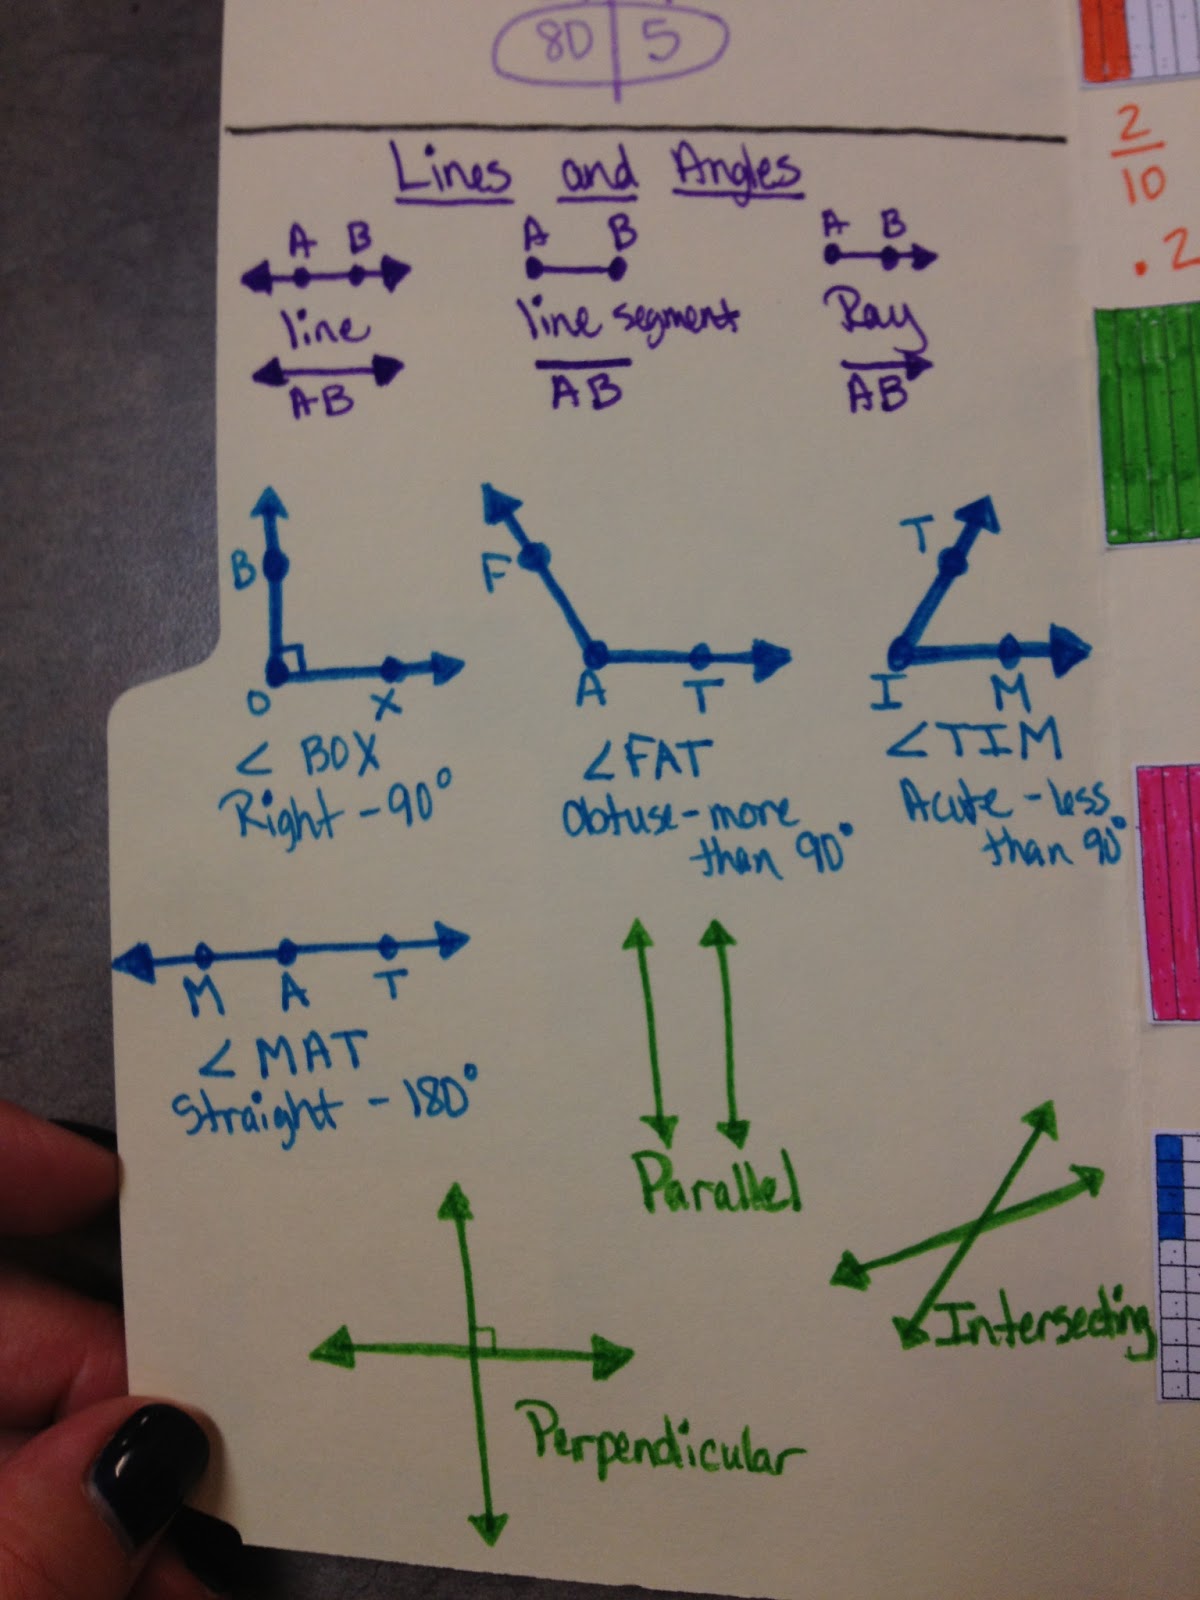 80 5
Lines and Angles
A B
line
AB
A B
line segment
AB
A B
Ray
AB
B
O X
∠ BOX
Right - 90°
F
A T
∠FAT
Obtuse - more
than 90°
T
I M
∠TIM
Acute - less
than 90°
M A T
∠ MAT
Straight - 180°
Parallel
Intersecting
Perpendicular
2
10
.2